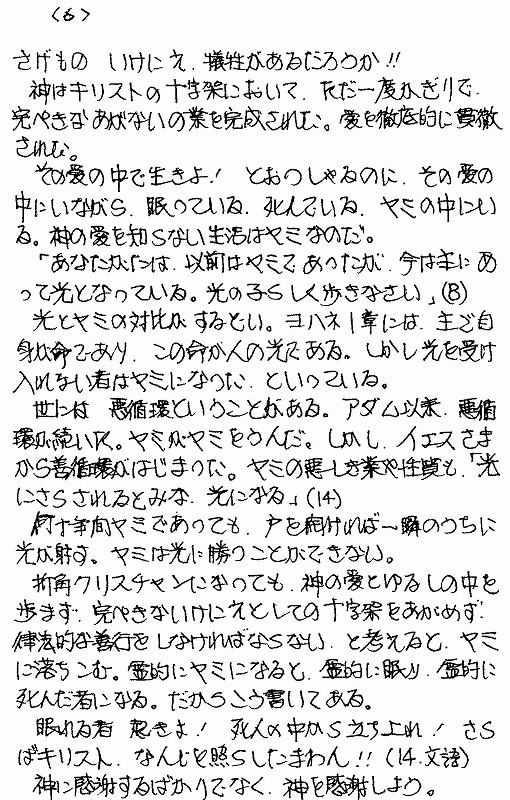 〈6〉
さげもの いけにえ、犠牲があるだろうか!!
神はキリストの十字架において、ただ一度かぎりで、
完ぺきなあがないの業を完成された。愛を徹底的に貫徹
された。
その愛の中で生きよ! とおっしゃるのに、その愛の
中にいながら、眠っている、死んでいる、ヤミの中にい
る。神の愛を知らない生活はヤミなのだ。
「あなたがたは、以前はヤミであったが、今は主にあ
って光となっている。光の子らしく歩きなさい」(8)
光とヤミの対比がするどい。ヨハネ1章には、主ご自
身が命であり、この命が人の光である。しかし光を受け
入れない者はヤミになった、といっている。
世には 悪循環ということがある。アダム以来、悪循
環が続いた。ヤミがヤミをうんだ。しかし、イエスさま
から善循環がはじまった。ヤミの悪しき業や性質も、「光
にさらされるとみな、光になる」(14)
何十年間ヤミであっても、戸を開ければ一瞬のうちに
光が射す。ヤミは光に勝つことができない。
折角クリスチャンになっても、神の愛とゆるしの中を
歩まず、完ぺきないけにえとしての十字架をあがめず、
律法的な善行をしなければならない、と考えると、ヤミ
に落ちこむ。霊的にヤミになると、霊的に眠り、霊的に
死んだ者になる。だからこう書いてある。
眠れる者 起きよ! 死人の中から立ち上れ! さら
ばキリスト、なんじを照らしたまわん!!(14.文語)
神に感謝するばかりでなく、神を感謝しよう。